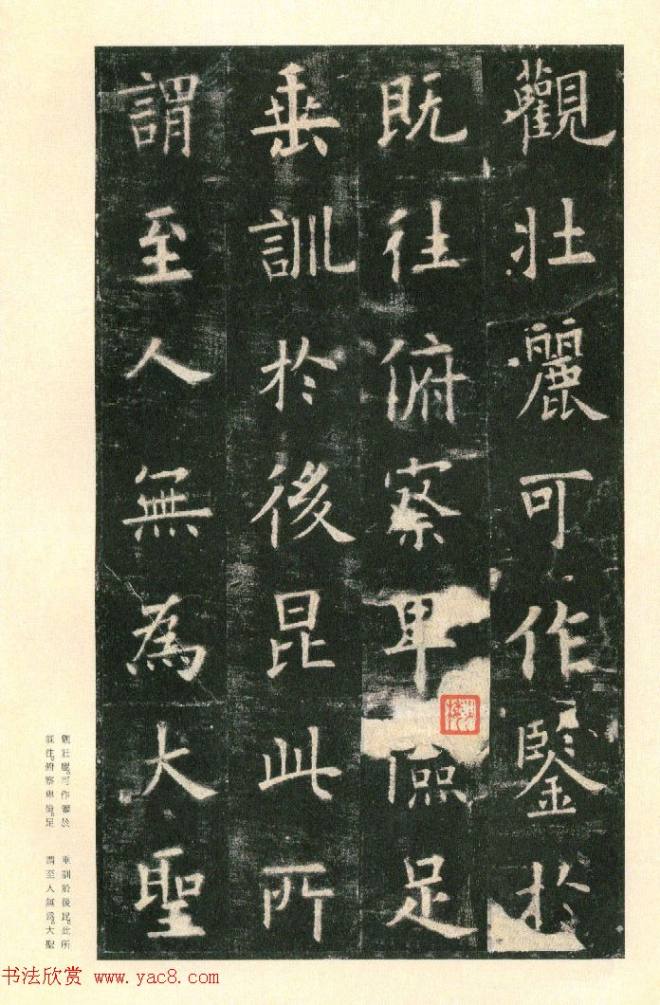 觀壯麗可作鑒於
既往俯察卑儉足
垂訓於後昆此所
謂至人無為大聖
觀壯麗。可作鑒於
既往。俯察卑儉。足
垂訓於後昆。此所
謂至人無爲。大聖
书法欣赏 www.yac8.com